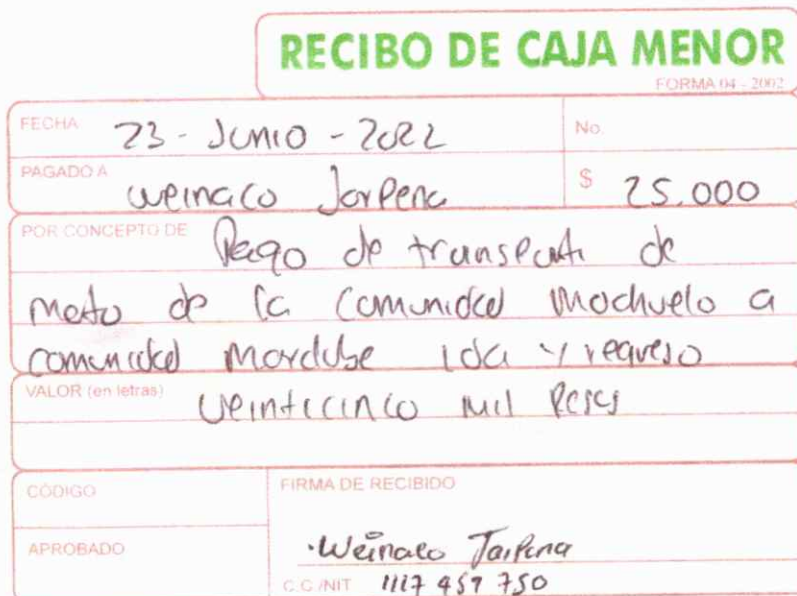 RECIBO DE CAJA MENOR
FORMA 04 - 2002
FECHA 23 - Junio - 2022 No.
PAGADO A weinaco Jarpena $ 25.000
POR CONCEPTO DE Pago de transporte de
moto de la Comunidad Mochuelo a
comunidad ida y regreso
VALOR (en letras) veinticinco mil Pesos
CÓDIGO
FIRMA DE RECIBIDO
APROBADO
C.C./NIT 1117 459 750